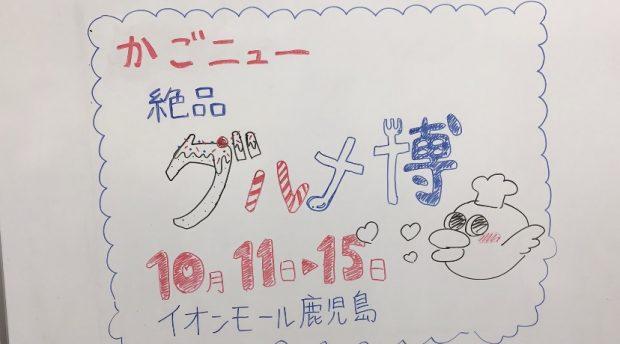 かごニュー
絶品
グルメ博
10月11日▶15日
イオンモール鹿児島